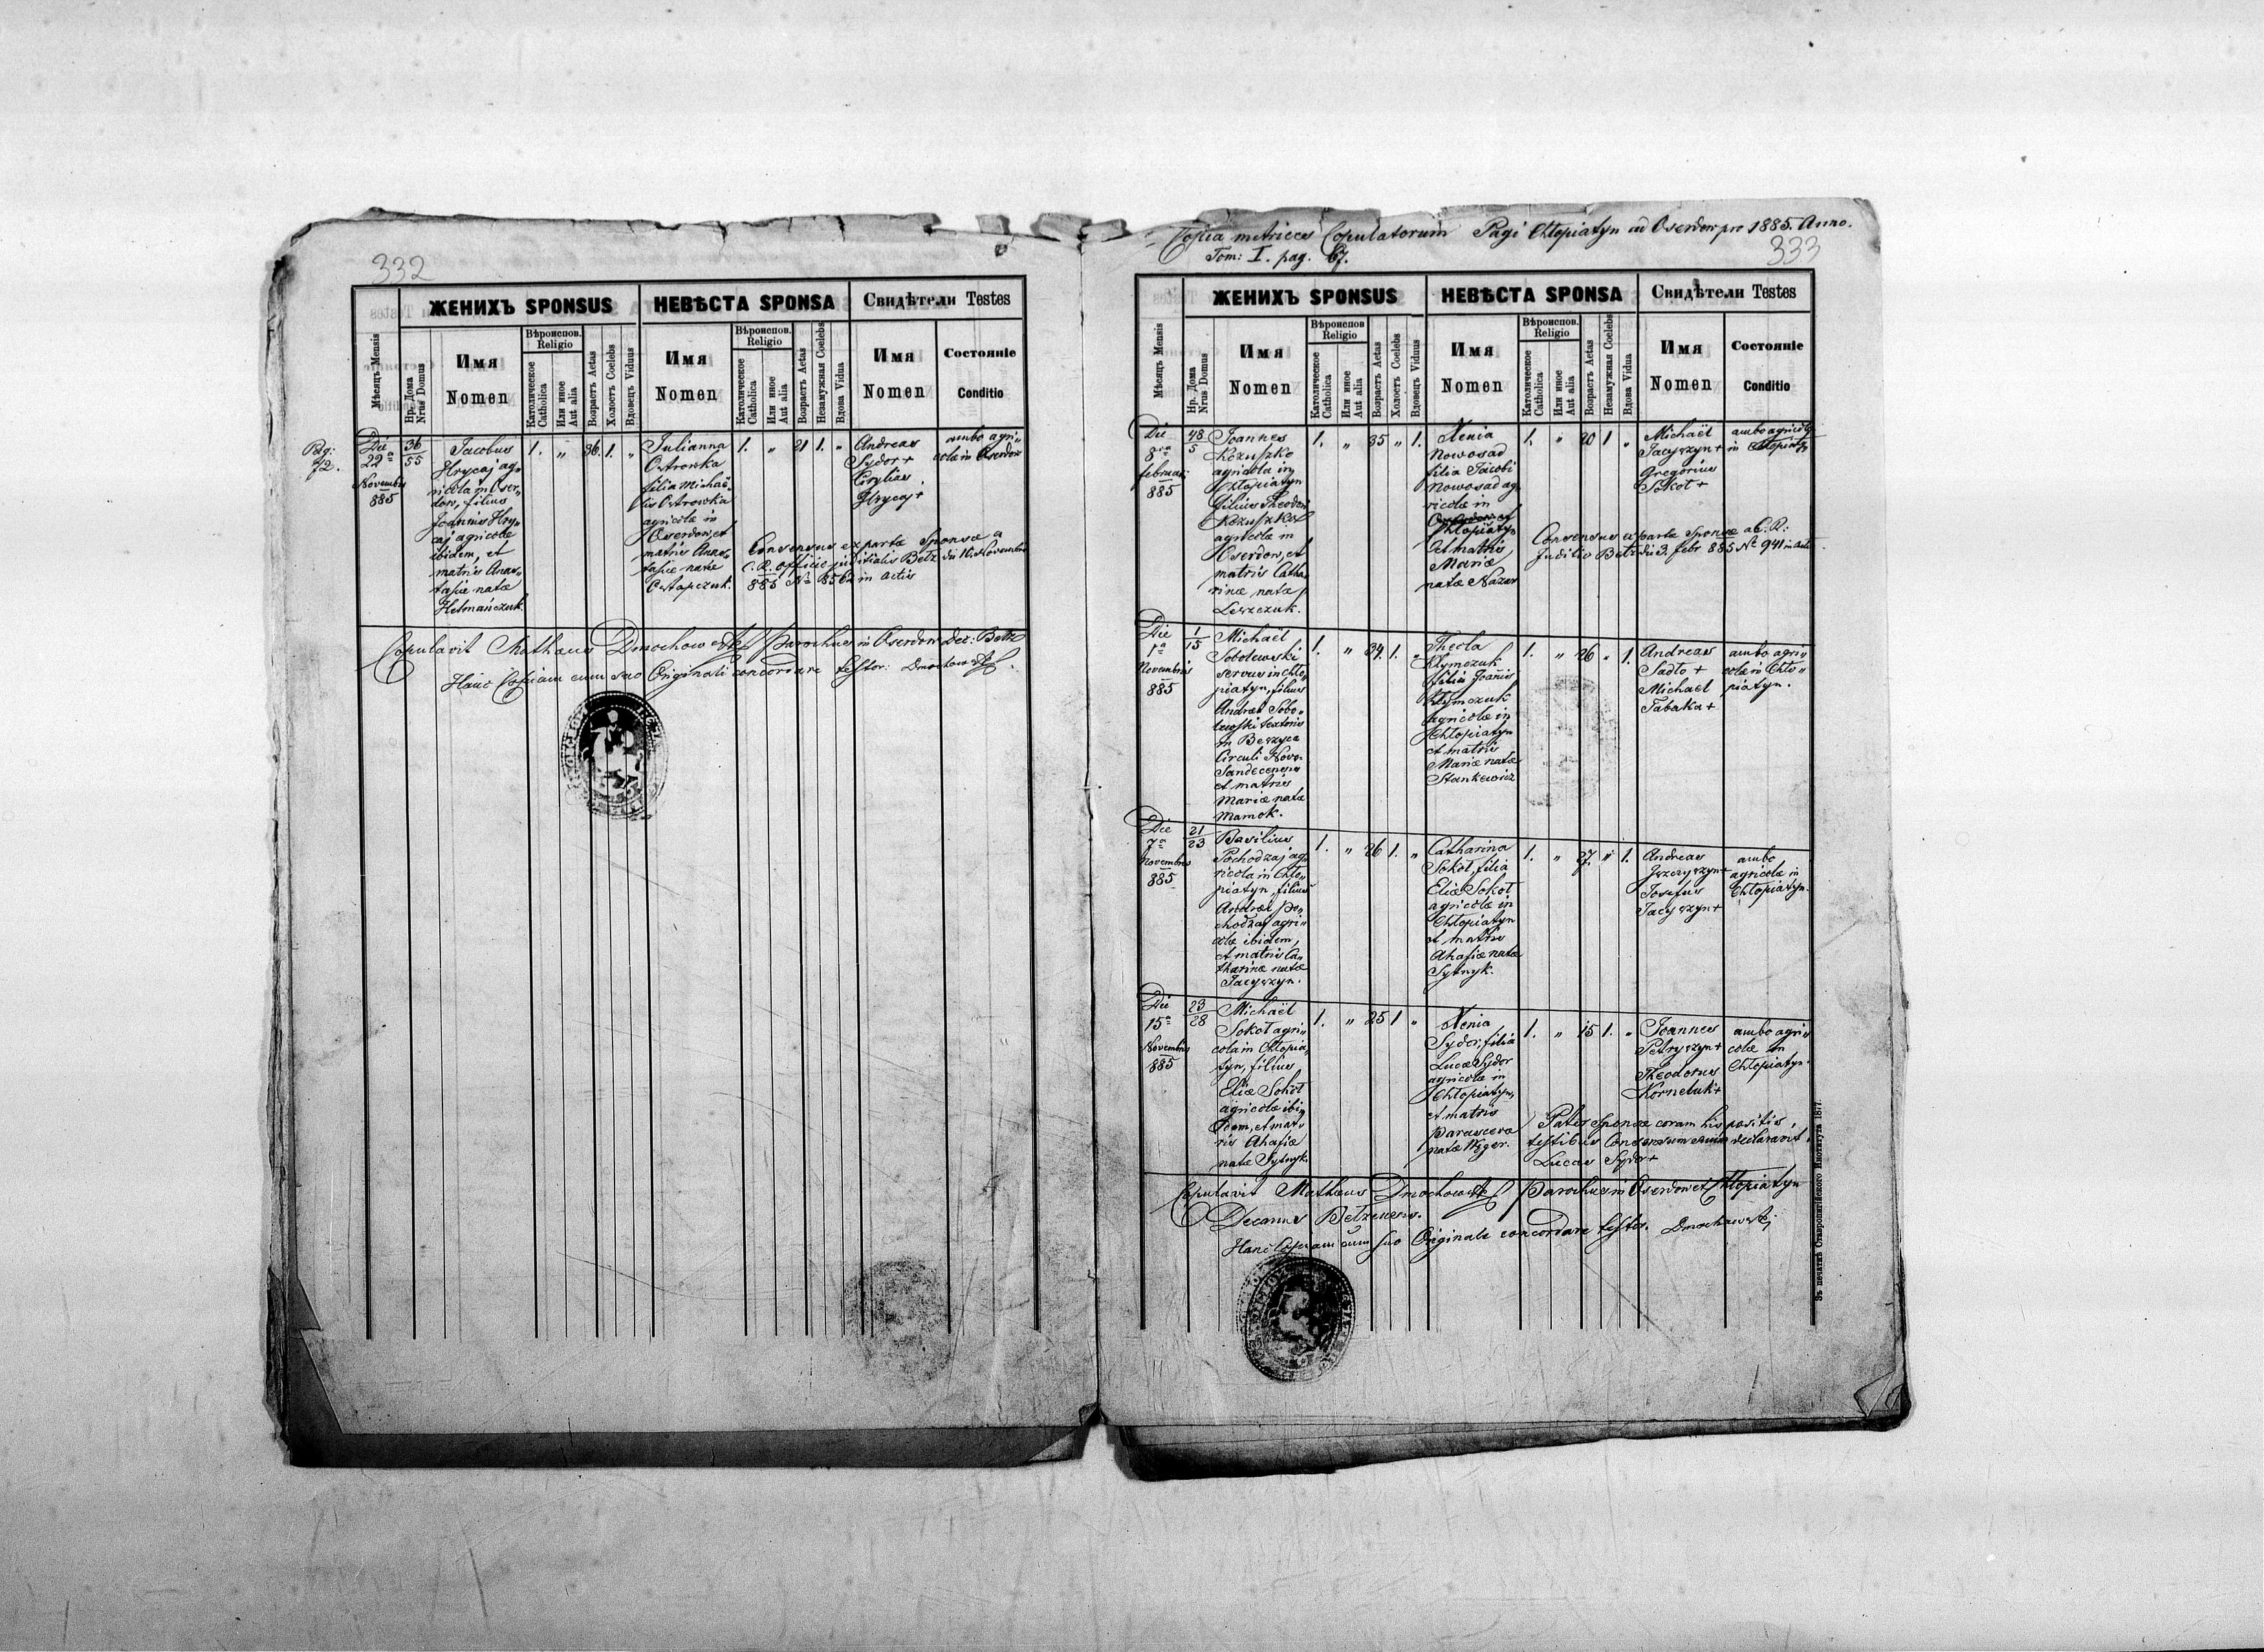 332
ЖЕНИХЪ SPONSUS
НЕВѢСТА SPONSA
Свидѣтели Testes
Мѣсяцъ Mensis
Нр. Дома
Nrus Domus
Имя
Nomen
Вѣроиспов.
Religio
Католическое
Catholica
Или иное
Aut alia
Возрастъ Aetas
Холостъ Coelebs
Вдовецъ Viduus
Имя
Nomen
Вѣроиспов.
Religio
Католическое
Catholica
Или иное
Aut alia
Возрастъ Aetas
Незамужная Coelebs
Вдова Vidua
Имя
Nomen
Состояніе
Conditio
Pag:
72.
Die
22ª
Novembris
885
36
55
Jacobus
Hrycaj ag„
ricola in Oser„
dow, filius
Joannis Hry„
caj agricolæ
ibidem, et
matris Anas„
tasiæ natæ
Hetmańczuk.
1.
„
36.
1.
„
Julianna
Ostrowka
filia Michaë„
lis Ostrowka
agricolæ in
Oserdow, et
matris Anas„
tasiæ natæ
Ostapczuk.
1.
„
21
1.
„
Andreas
Sydor +
Cirylius
Hrycaj +
ambo agri„
colæ in Oserdow
Consensus ex parte Sponsæ a
C. R. Officio juditialis Bełz die 11 Novembris
885 № 8562 in actis
Copulavit Mathæus Dmochowski Parochus in Oserdow Dec: Bełz
Hanc Copiam cum suo Originali concordare testor: Dmochowski.
Copia metrices Copulatorum Pagi Chłopiatyn ad Oserdow pro 1885. Anno.
333
Tom: I. pag. 67.
ЖЕНИХЪ SPONSUS
НЕВѢСТА SPONSA
Свидѣтели Testes
Мѣсяцъ Mensis
Нр. Дома
Nrus Domus
Имя
Nomen
Вѣроиспов
Religio
Католическое
Catholica
Или иное
Aut alia
Возрастъ Aetas
Холостъ Coelebs
Вдовецъ Viduus
Имя
Nomen
Вѣроиспов.
Religio
Католическое
Catholica
Или иное
Aut alia
Возрастъ Aetas
Незамужная Coelebs
Вдова Vidua
Имя
Nomen
Состояніе
Conditio
Die
8ª
februarii
885
48
5
Joannes
Kozuszko
agricola in
Chłopiatyn
filius Theodori
Kozuszko
agricolæ in
Oserdow, et
matris Catha„
rinæ natæ
Leszczuk.
1.
„
35
„
1.
Xenia
Nowosad
filia Jacobi
Nowosad ag„
ricolæ in
Chłopiatyn
et matris
Mariæ
natæ Nazar
1.
„
20
1
„
Michaël
Jacyszyn +
Gregorius
Sokoł +
ambo agricolæ
in Chłopiatyn
Consensus ex parte Sponsæ a C. R:
Juditio Bełz die 3. febr 885 № 941 in actis
Die
1ª
Novembris
885
1
15
Michaël
Sobolewski
servus in Chło„
piatyn, filius
Andreæ Sobo„
lewski textoris
in
Circuli Novo„
Sandecensis
et matris
Mariæ natæ
Mamok.
1.
„
34.
1.
„
Thecla
Klymczuk
filia Joannis
Klymczuk
agricolæ in
Chłopiatyn
et matris
Mariæ natæ
Stankewicz
1.
„
26
„
1.
Andreas
Sadło +
Michaël
Tabaka +
ambo agri„
colæ in Chło„
piatyn.
Die
7ª
Novembris
885
21
23
Basilius
Pochodzaj ag„
ricola in Chło„
piatyn, filius
Andreæ Po„
chodzaj agri„
colæ ibidem,
et matris Ca„
tharinæ natæ
Jacyszyn.
1.
„
26
1.
„
Catharina
Sokoł, filia
Eliæ Sokoł
agricolæ in
Chłopiatyn
et matris
Ahafiæ natæ
Sytnyk.
1.
„
27.
„
1.
Andreas
Josefus
Jacyszyn +
ambo
agricolæ in
Chłopiatyn.
Die
15ª
Novembris
885
23
28
Michaël
Sokoł agri„
cola in Chłopia„
tyn, filius
Eliæ Sokoł
agricolæ ibi„
dem, et mat„
ris Ahafiæ
natæ Sytnyk.
1.
„
25
1
„
Xenia
Sydor, filia
Lucæ Sydor
agricolæ in
Chłopiatyn,
et matris
Parasceva
natæ
1.
„
15
1.
„
Joannes
Petryszyn +
Theodorus
Korneluk +
ambo agri„
colæ in
Chłopiatyn.
Pater Sponsæ coram his positis,
testibus Consensum suum declaravit.
Lucas Sydor +
Copulavit Mathæus Dmochowski Parochus in Oserdow et Chłopiatyn
Decanus Bełzensis.
Hanc Copiam cum suo Originale concordare testor. Dmochowski.
Зъ печатнѣ Ставропигійского Института 1817.